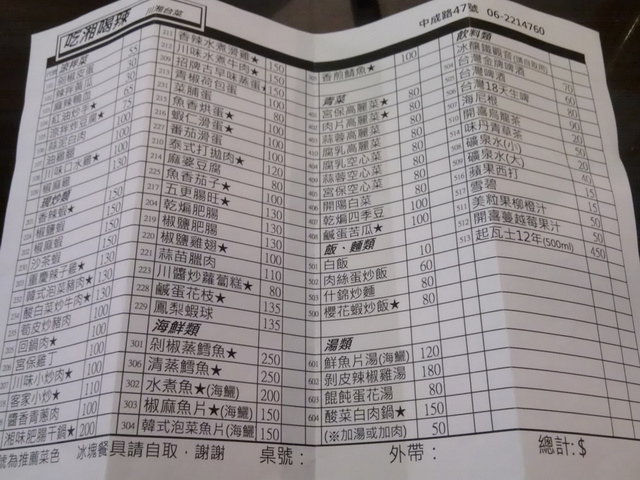 吃湘喝辣
中成路47號 06-2214760
涼拌類
皮蛋豆腐 55
30
65
25
蒜泥白肉 100
油雞腿 130
口水雞★ 130
椒麻雞
熱炒類
香辣蝦★ 150
椒鹽蝦 150
椒麻蝦 150
沙茶蝦 130
重慶辣子雞★ 130
韓式泡菜豬肉★ 120
酸白菜炒牛肉★ 130
筍皮炒豬肉 100
205 回鍋肉★ 100
206 宮保雞丁 100
207 川味小炒肉★ 100
208 客家小炒★ 110
醬香青蔥肉 100
湘味肥腸干鍋★ 200
211 香辣水煮滑雞★
212 川味水煮牛肉★ 150
209 招牌古早味蒸蛋★ 150
213 青椒荷包蛋 100
231 菜脯蛋 80
215 魚香烘蛋★ 80
216 蝦仁滑蛋★ 100
227 番茄滑蛋 100
210 泰式打拋肉★ 100
214 麻婆豆腐 120
225 魚香茄子★ 80
217 五更腸旺★ 100
204 乾煸肥腸 130
219 椒鹽肥腸 130
220 椒鹽雞翅★ 130
221 蒜苗臘肉 100
223 川醬炒蘿蔔糕★ 110
228 鹹蛋花枝★ 80
229 鳳梨蝦球 135
135
海鮮類
301 剁椒蒸鱈魚★ 250
306 清蒸鱈魚★ 250
302 水煮魚★(海鱺) 200
303 椒麻魚片★(海鱺) 150
304 韓式泡菜魚片(海鱺) 150
305 香煎鯖魚★ 100
青菜
401 宮保高麗菜★ 80
402 肉片高麗菜★ 100
403 蒜蓉高麗菜 80
405 腐乳高麗菜 80
404 腐乳空心菜 80
409 蒜蓉空心菜 80
405 宮保空心菜 80
406 開陽白菜 100
407 乾煸四季豆 100
408 鹹蛋苦瓜★ 100
飯.麵類
501 白飯 10
502 肉絲蛋炒飯 60
503 什錦炒麵 80
500 櫻花蝦炒飯★ 80
湯類
601 鮮魚片湯(海鱺) 120
602 剝皮辣椒雞湯 180
603 餛飩蛋花湯 80
604 酸菜白肉鍋★ 150
(※加湯或加肉) 50
飲料類
冰釀鐵觀音
台灣金牌啤酒 70
台灣啤酒 60
台灣18天生啤 80
507 海尼根 90
510 開喜烏龍茶 20
514 味丹青草茶 20
508 礦泉水(小) 20
509 礦泉水(大) 40
516 蘋果西打 15
517 雪碧 15
511 美粒果柳橙汁 50
512 開喜蔓越莓果汁 50
513 起瓦士12年(500ml) 450
號為推薦菜色 冰塊餐具請自取，謝謝 桌號： 外帶： 總計:$